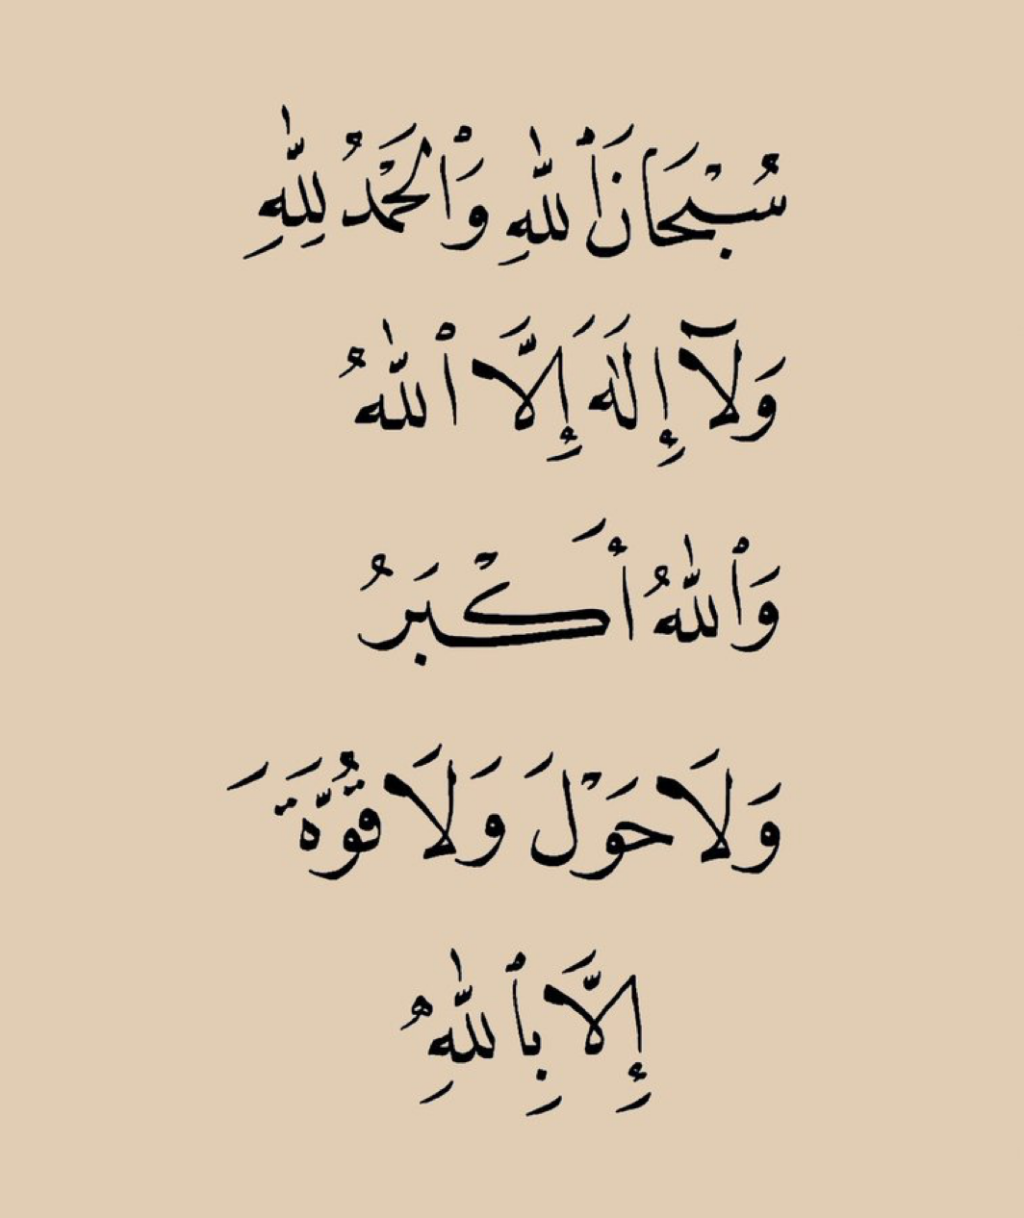 سُبْحَانَ ٱللّٰهِ وَٱلْحَمْدُ لِلّٰهِ
وَلَآ إِلٰهَ إِلَّا ٱللّٰهُ
وَٱللّٰهُ أَكْبَرُ
وَلَا حَوْلَ وَلَا قُوَّةَ
إِلَّا بِٱللّٰهِ